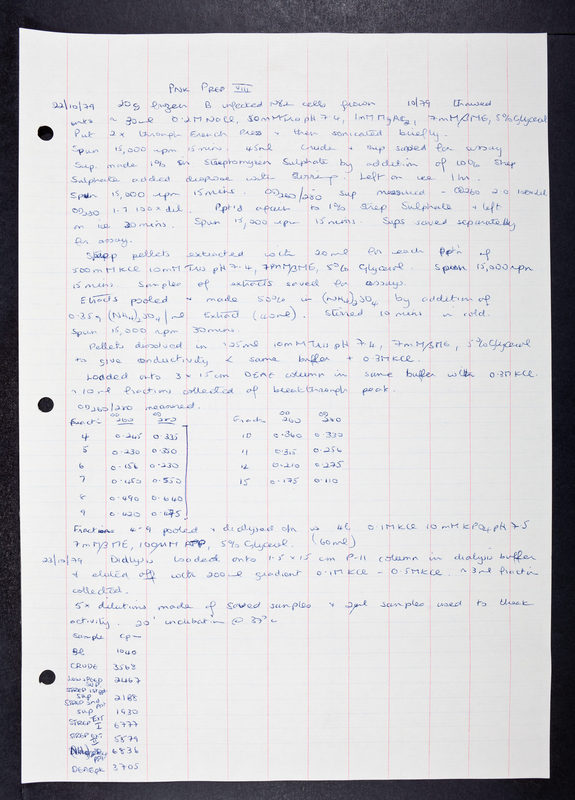 PNK PREP VIII
22/10/79 20g frozen B infected cells grown 10/79 thawed
into ~ 30ml 0.2M NaCl, 50mM Tris pH 7.4, 1mM MgAc2, 7mM βME, 5% Glycerol
Put 2x through French Press & then sonicated briefly.
Spun 15,000 rpm 15 mins. 45ml Crude & sup saved for assay
Sup. made 1% in Streptomycin Sulphate by addition of 10% Strep
Sulphate added dropwise with stirring. Left on ice 1 hr.
Spun 15,000 rpm 15 mins. OD260/280 sup measured - OD260 2.0 100xdil
OD280 1.7 100x dil. Ppt'd again to 1% Strep Sulphate & left
on ice 30 mins. Spun 15,000 rpm 15 mins. Sups saved separately
for assay.
Strep pellets extracted with 20ml for each ppt'n of
500mM KCl 10mM Tris pH 7.4, 7mM βME, 5% Glycerol. Spun 15,000 rpm
15 mins. Samples of extracts saved for assays.
Extracts pooled & made 50% in (NH4)2SO4 by addition of
0.35g (NH4)2SO4/ml Extract (40ml). Stirred 10 mins in cold.
Spun 15,000 rpm 30 mins.
Pellets dissolved in 125ml 10mM Tris pH 7.4, 7mM βME, 5% Glycerol
to give conductivity < same buffer + 0.3M KCl.
Loaded onto 3 x 15 cm DEAE column in same buffer with 0.3M KCl.
~10ml fractions collected of breakthrough peak.
OD260/280 measured.
Fract'n OD 260 OD 280 Fract'n OD 260 OD 280
4 0.245 0.335 10 0.360 0.330
5 0.230 0.350 11 0.315 0.256
6 0.156 0.230 12 0.210 0.275
7 0.450 0.550 15 0.175 0.110
8 0.490 0.640
9 0.420 0.475
Fractions 4-9 pooled & dialysed o/n vs 4l 0.1M KCl 10mM KPO4 pH 7.5
7mM βME, 100µM ATP, 5% Glycerol. (60ml)
23/10/79 Dialysis loaded onto 1.5 x 15 cm P-11 column in dialysis buffer
& eluted off with 200ml gradient 0.1M KCl - 0.5M KCl. ~3ml fractn
collected.
5x dilutions made of saved samples & 2µl samples used to check
activity. 20' incubation @ 37°C
Sample cpm
Bl 1040
CRUDE 3568
sup 2467
STREP 1st ppt SUP 2188
STREP 2nd ppt SUP 1930
STREP EXT I 6777
STREP EXT II 5879
ppt 6836
DEAE pk 3705